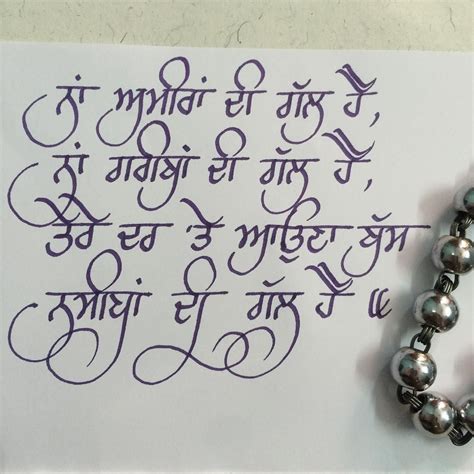 ਨਾਂ ਅਮੀਰਾਂ ਦੀ ਗੱਲ ਹੈ,
ਨਾਂ ਗਰੀਬਾਂ ਦੀ ਗੱਲ ਹੈ,
ਤੇਰੇ ਦਰ 'ਤੇ ਆਉਣਾ ਬੱਸ
ਨਸੀਬਾਂ ਦੀ ਗੱਲ ਹੈ